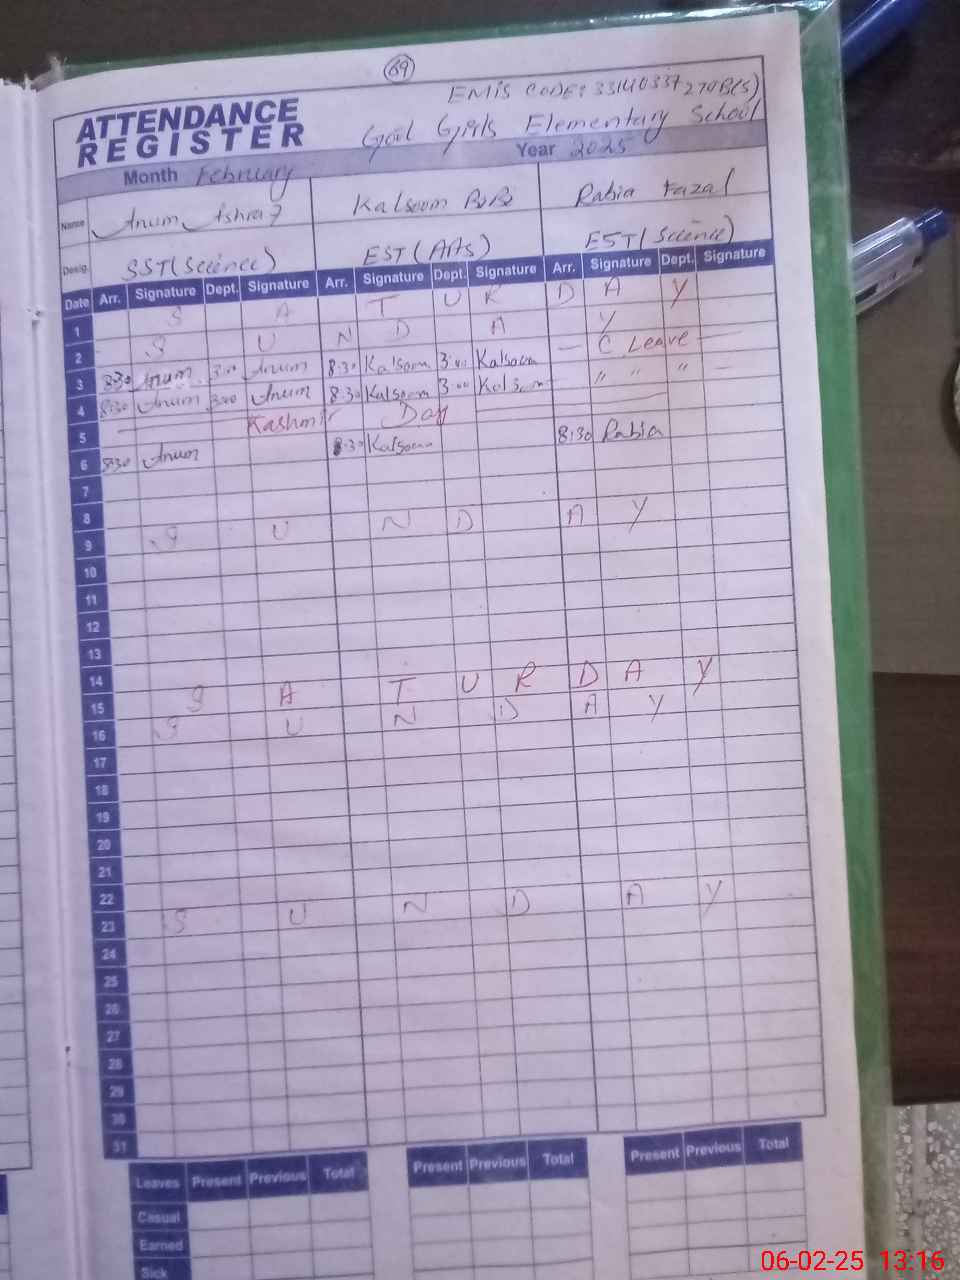 69
EMIS CODE: 33140337 270B(S)
ATTENDANCE
REGISTER
Govt Girls Elementary School
Month February Year 2025
Name Anum Ashraf Kalsoom BiBi Rabia Fazal
Desig. SST(Science) EST (Arts) EST(Science)
Date Arr. Signature Dept. Signature Arr. Signature Dept. Signature Arr. Signature Dept. Signature
1 S A T U R D A Y
2 S U N D A Y
3 8:30 Anum 3:00 Anum 8:30 Kalsoom 3:00 Kalsoom — C Leave —
4 8:30 Anum 3:00 Anum 8:30 Kalsoom 3:00 Kalsoom — " " " —
5 Kashmir Day
6 8:30 Anum 8:30 Kalsoom 8:30 Rabia
7
8
9 S U N D A Y
10
11
12
13
14
15 S A T U R D A Y
16 S U N D A Y
17
18
19
20
21
22
23 S U N D A Y
24
25
26
27
28
29
30
31
Leaves Present Previous Total Present Previous Total Present Previous Total
Casual
Earned
Sick
06-02-25 13:16